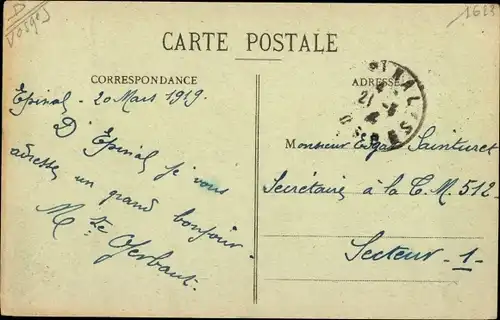 Vosges
1623
CARTE POSTALE
CORRESPONDANCE
ADRESSE
Epinal - 20 Mars 1919.
D'Epinal je vous
adresse un grand bonjour.
Monsieur Edgar Sainturet
Secrétaire à la T. M. 512
Secteur - 1 -